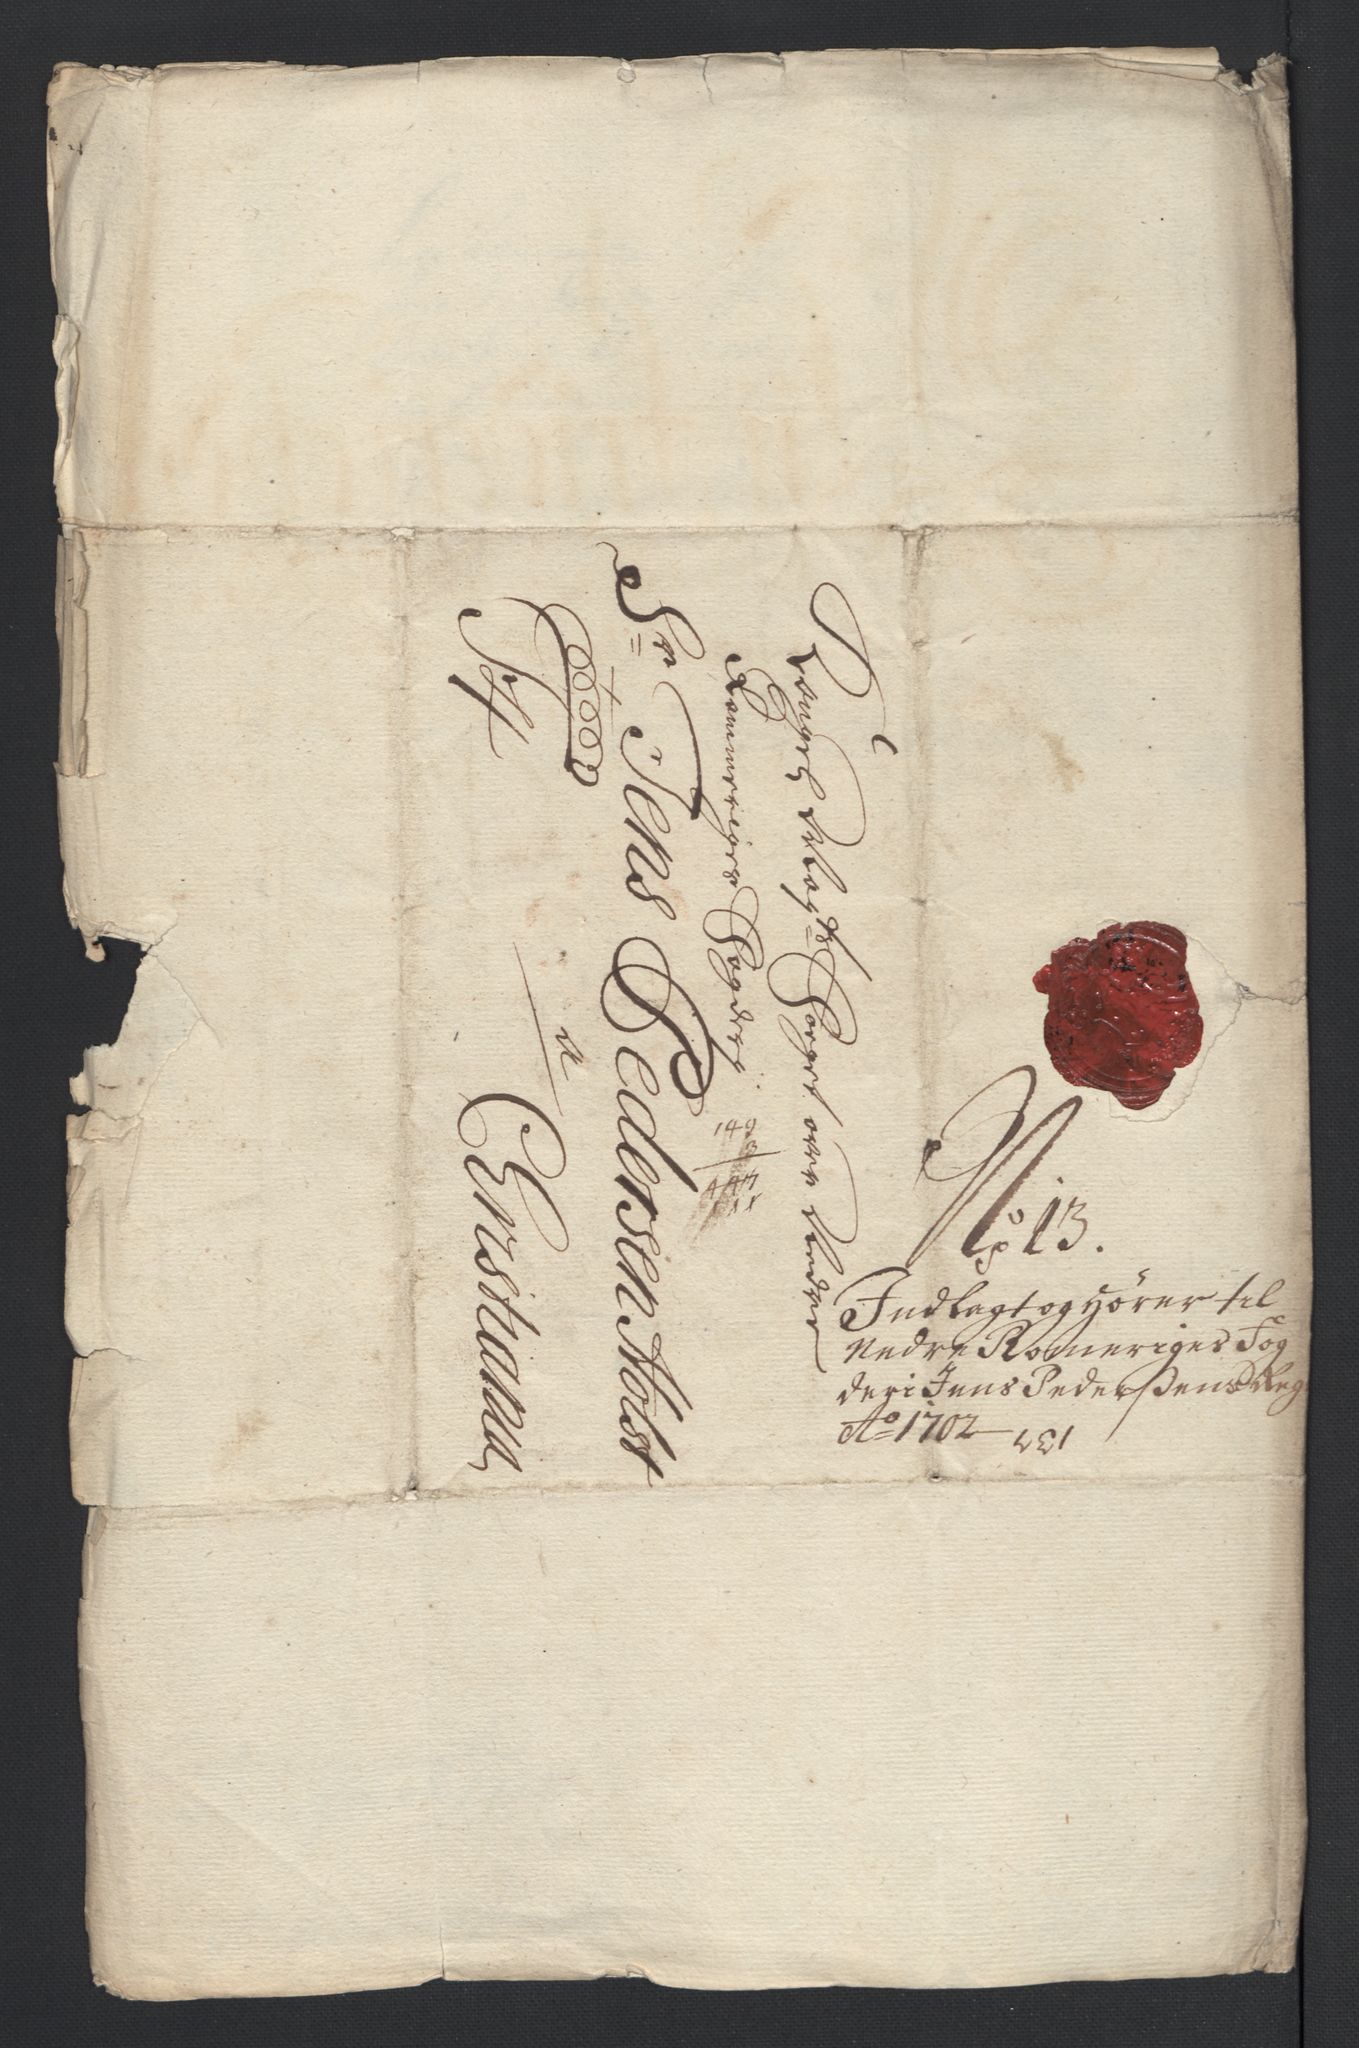 Kongl: Mayts: Foget over Nedre
Rommeriges Fogderj
Sr: Jens Pedersen Holst
a
Christiana
149
3
447
No 13.
Indlagt og Hører til
Nedre Romeriges Fog
deri Jens Pederssens Reg
Ao 1702